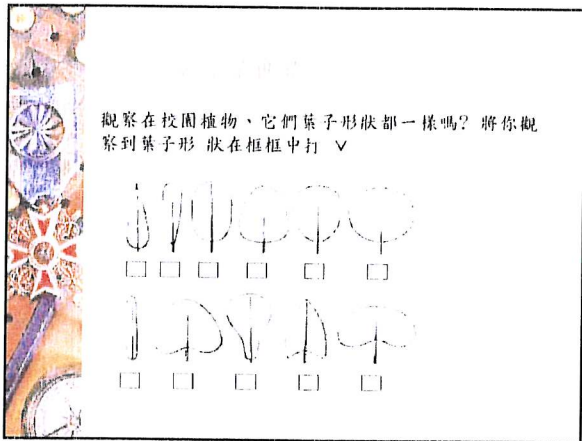 觀察在校園植物、它們葉子形狀都一樣嗎? 將你觀
察到葉子形 狀在框框中打 ∨